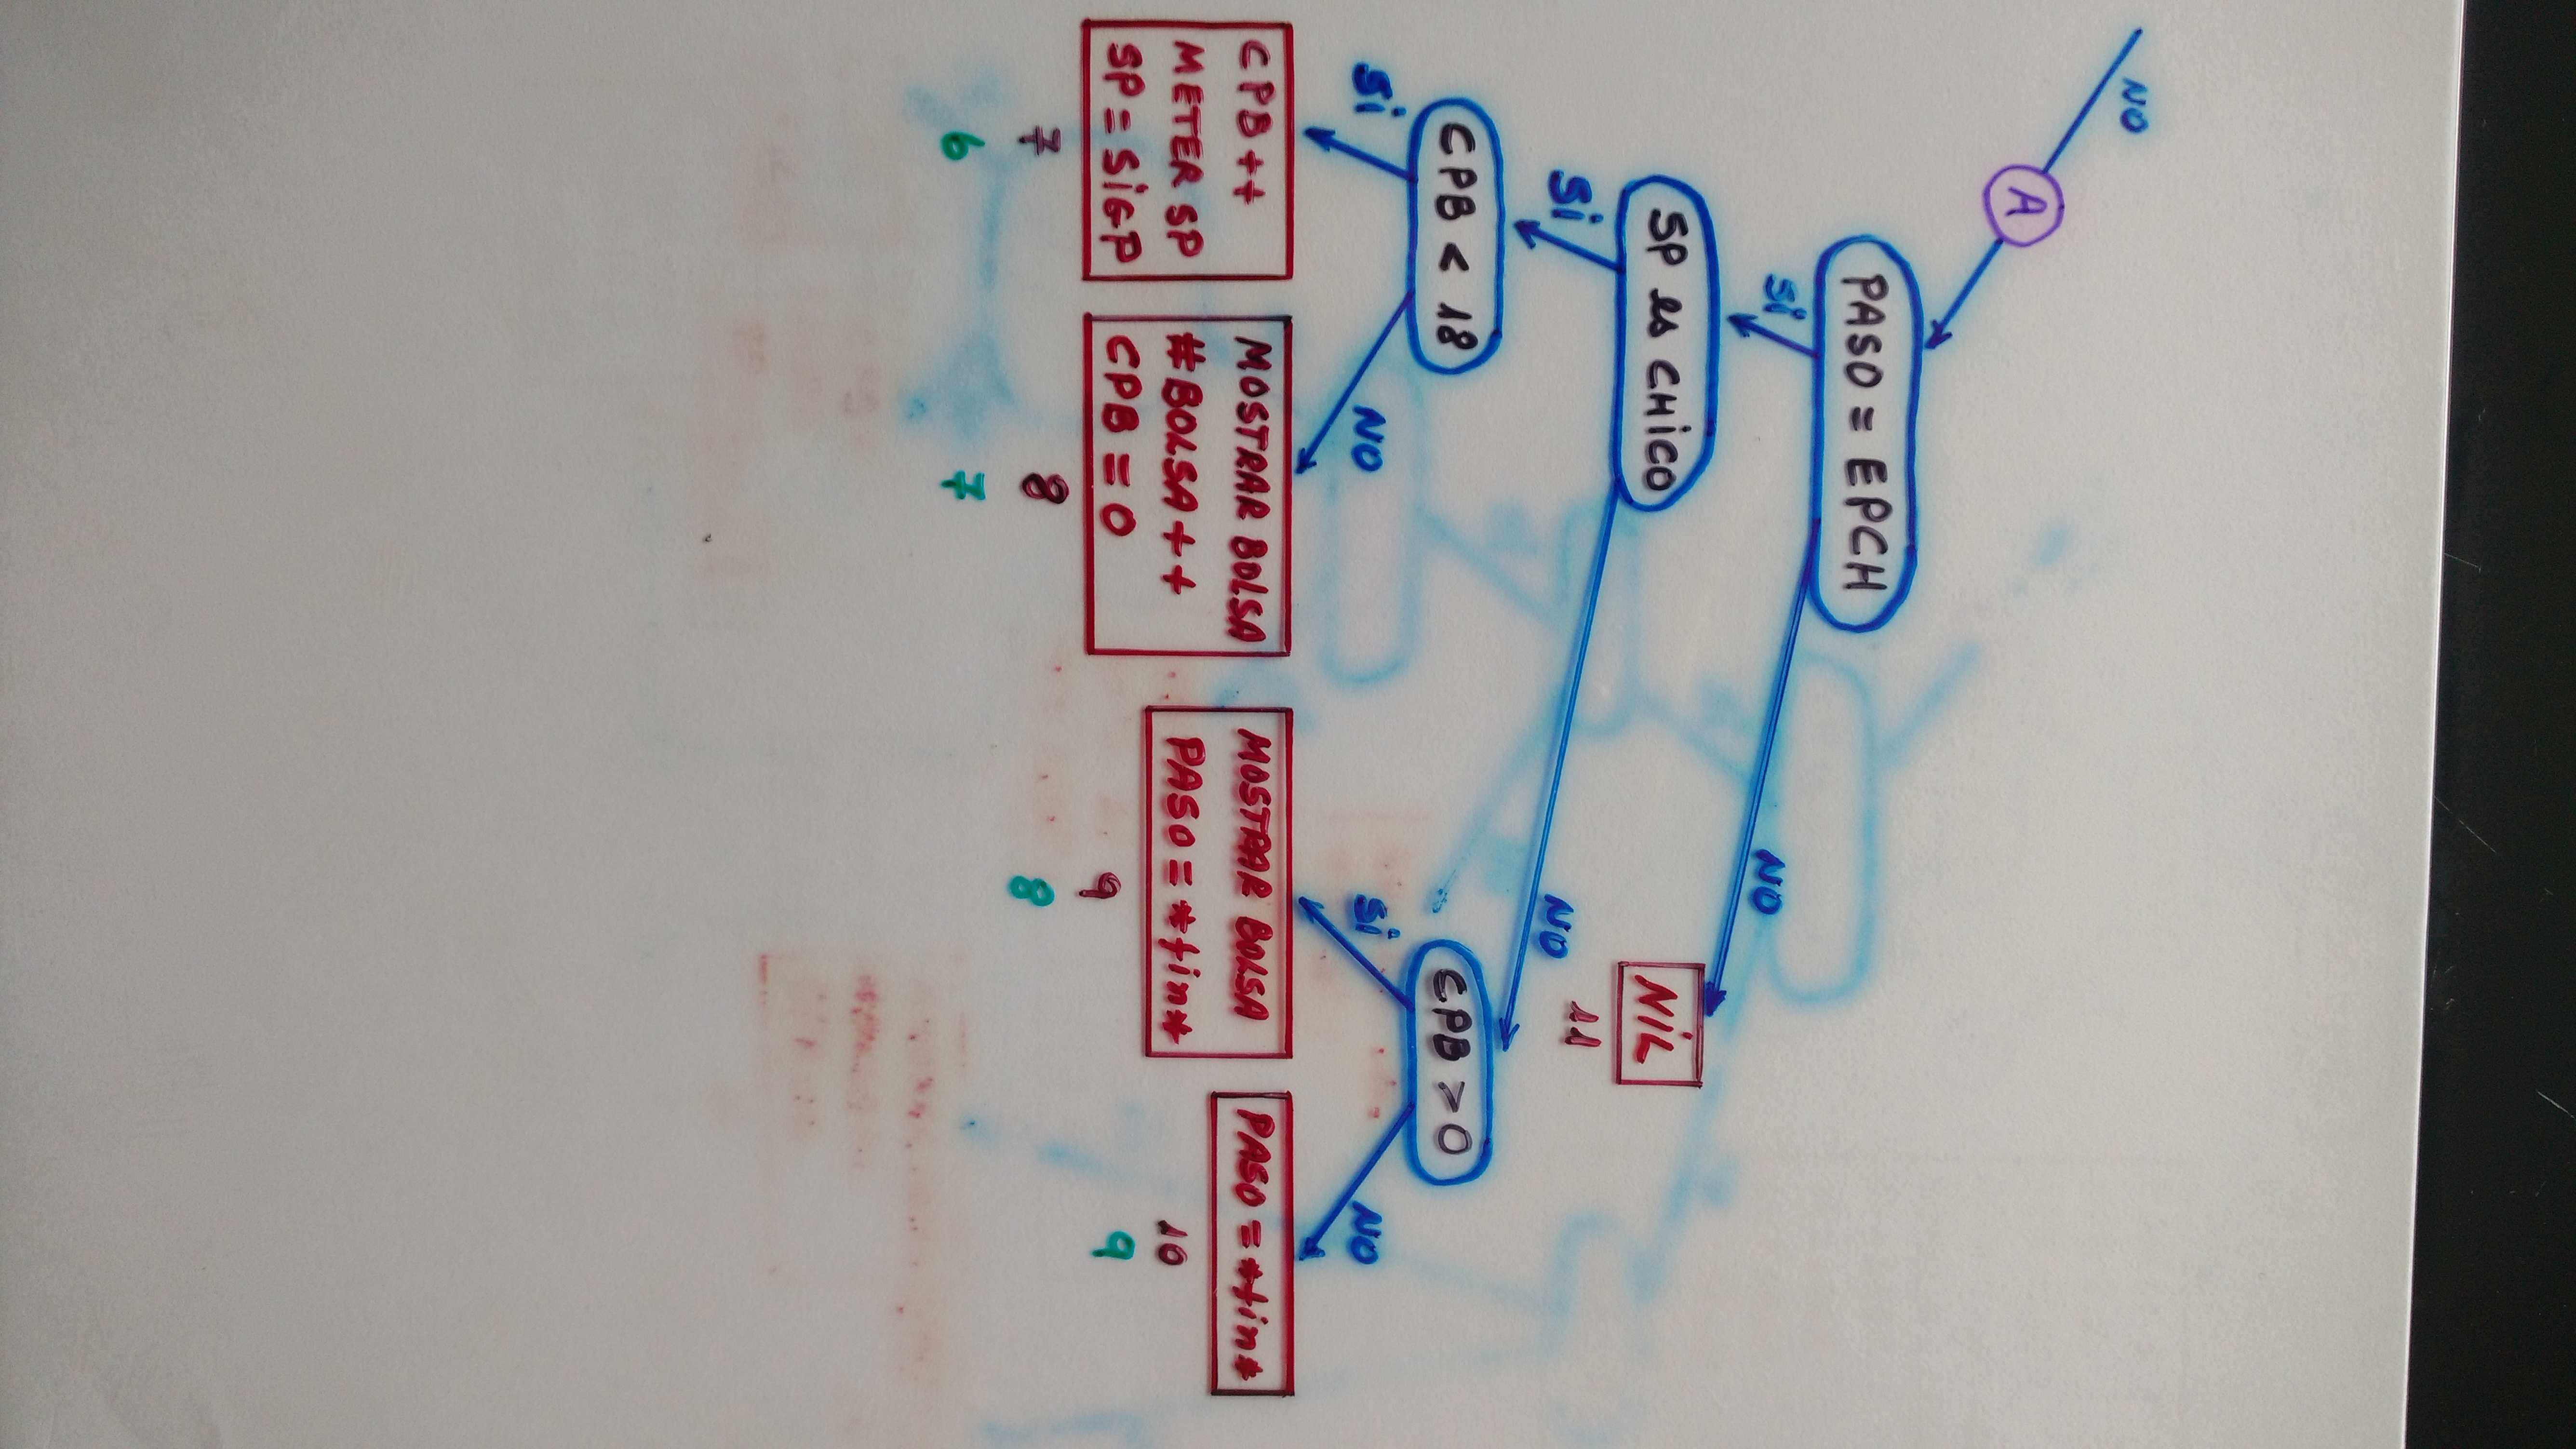 NO
A
PASO = EPCH
Si
NO
SP es CHiCO
NiL
11
Si
NO
CPB < 18
CPB > 0
Si
NO
Si
NO
CPB ++
METER SP
SP = SiGP
7
6
MOSTRAR BOLSA
#BOLSA ++
CPB = 0
8
7
MOSTRAR BOLSA
PASO = *fin*
9
8
PASO = *fin*
10
9